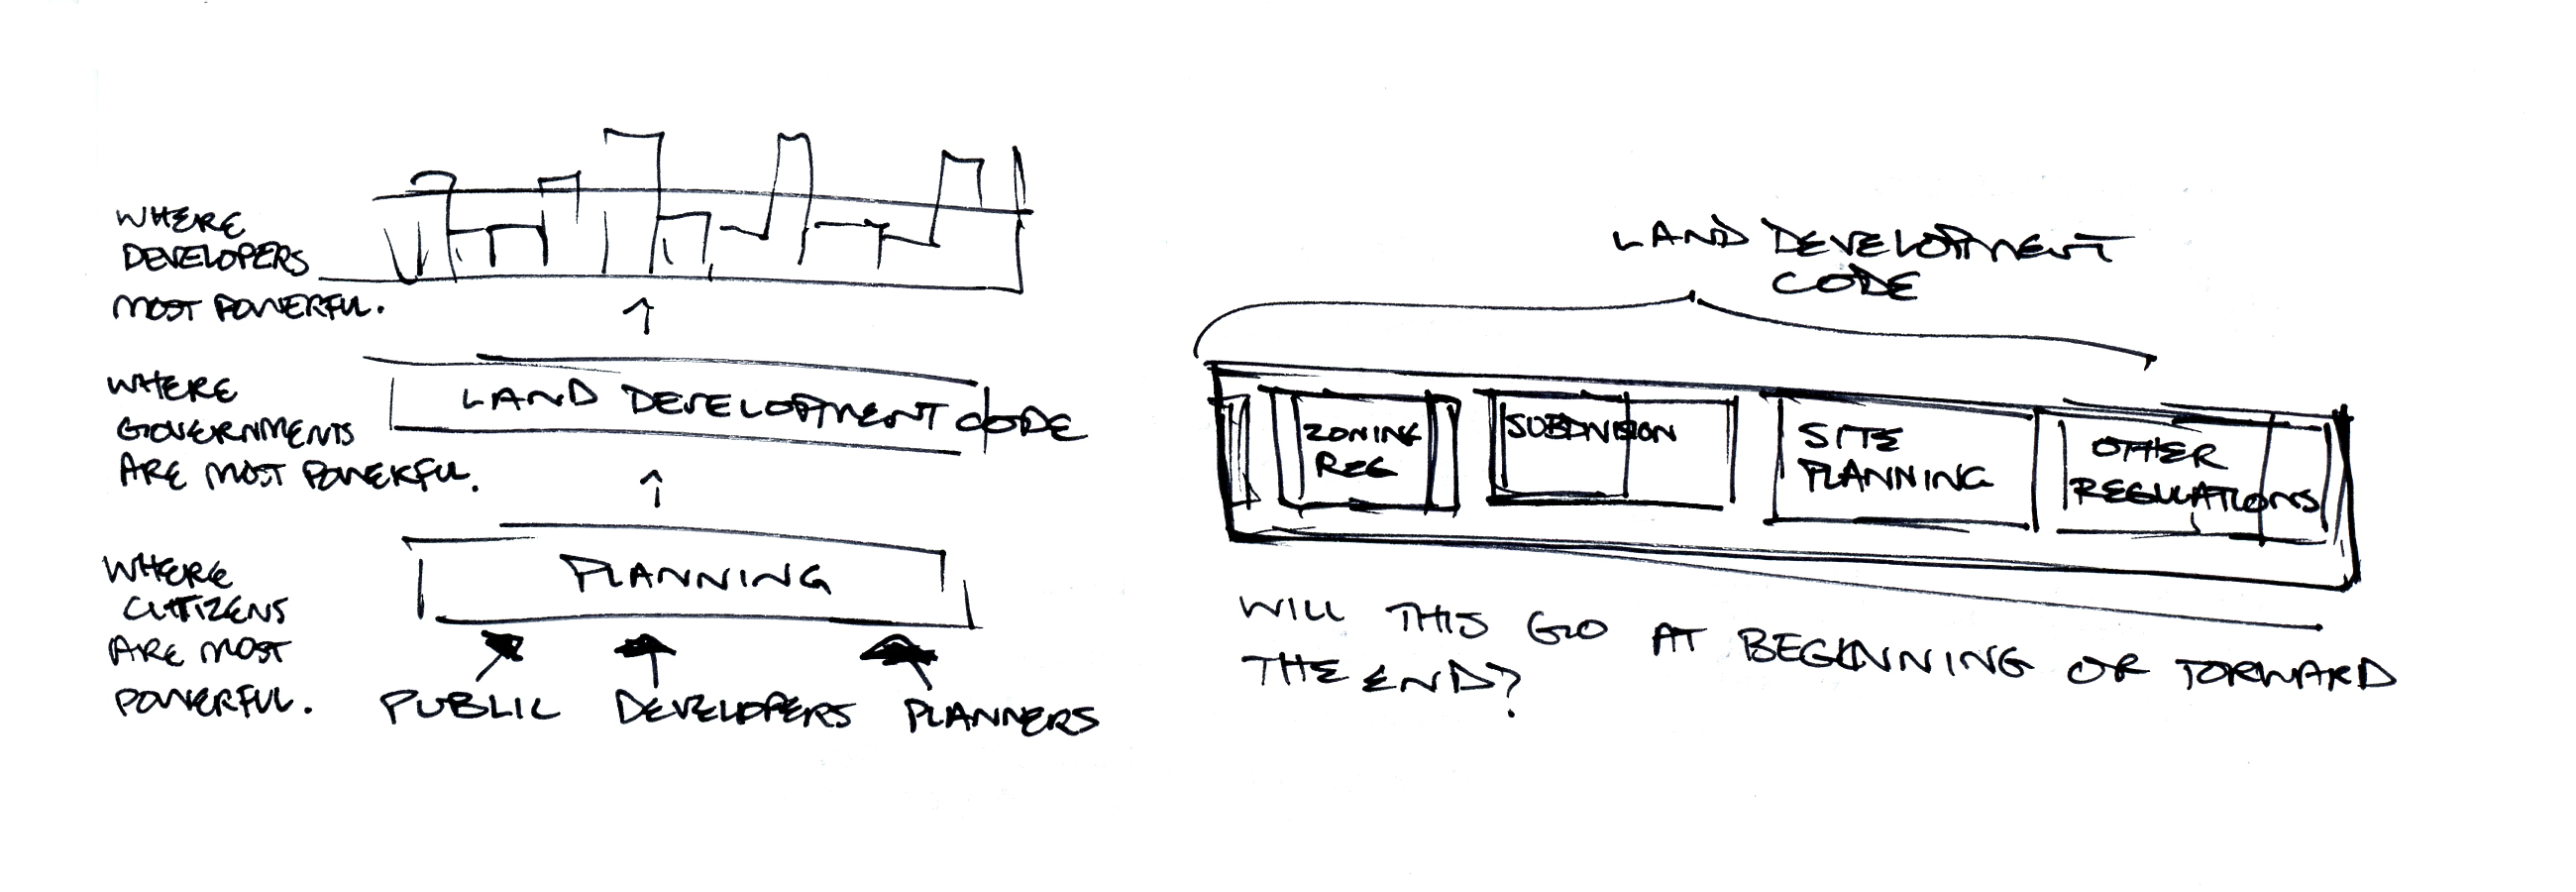 WHERE
DEVELOPERS
MOST POWERFUL.
WHERE
GOVERNMENTS
ARE MOST POWERFUL.
LAND DEVELOPMENT CODE
WHERE
CITIZENS
ARE MOST
POWERFUL.
PLANNING
PUBLIC
DEVELOPERS
PLANNERS
LAND DEVELOPMENT
CODE
ZONING
REG
SUBDIVISION
SITE
PLANNING
OTHER
REGULATIONS
WILL THIS GO AT BEGINNING OR TORWARD
THE END?